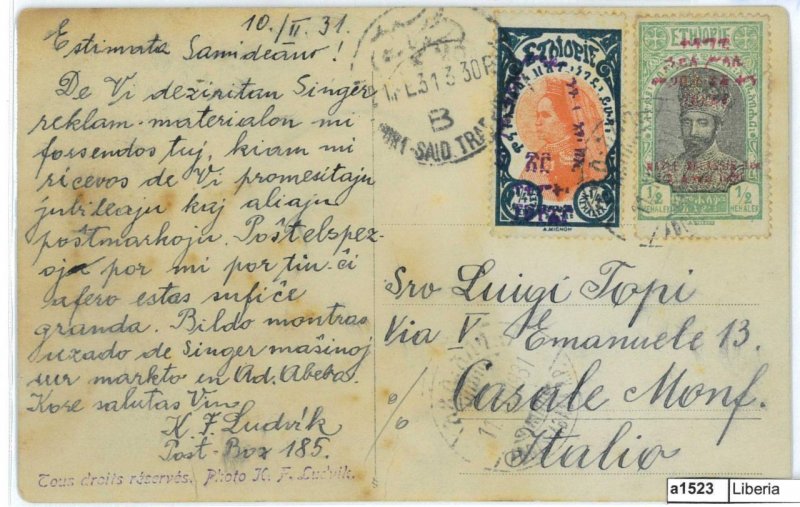 10./II.31.
Estimata Samideano!
De Vi deziritan Singer
reklam-materialon mi
forsendos tuj, kiam mi
ricevos de Vi promesitajn
jubileajn kaj aliajn
poŝtmarkojn. Poŝtelspez-
oj por mi por tiu-ĉi
afero estas sufiĉe
granda. Bildo montras
uzado de Singer maŝinoj
sur markto en Ad. Abeba.
Kore salutas Vin
K. F. Ludvik
Post-Box 185.
Tous droits réservés. Photo K. F. Ludvik.
PORT-SAID TRAF
B
ETHIOPIE
A. MICHON
ETHIOPIE
1/2 1/2
MEHALEK MEHALEK
Sro Luigi Topi
Via V. Emanuele 13.
Casale Monf.
Italio
a1523 Liberia